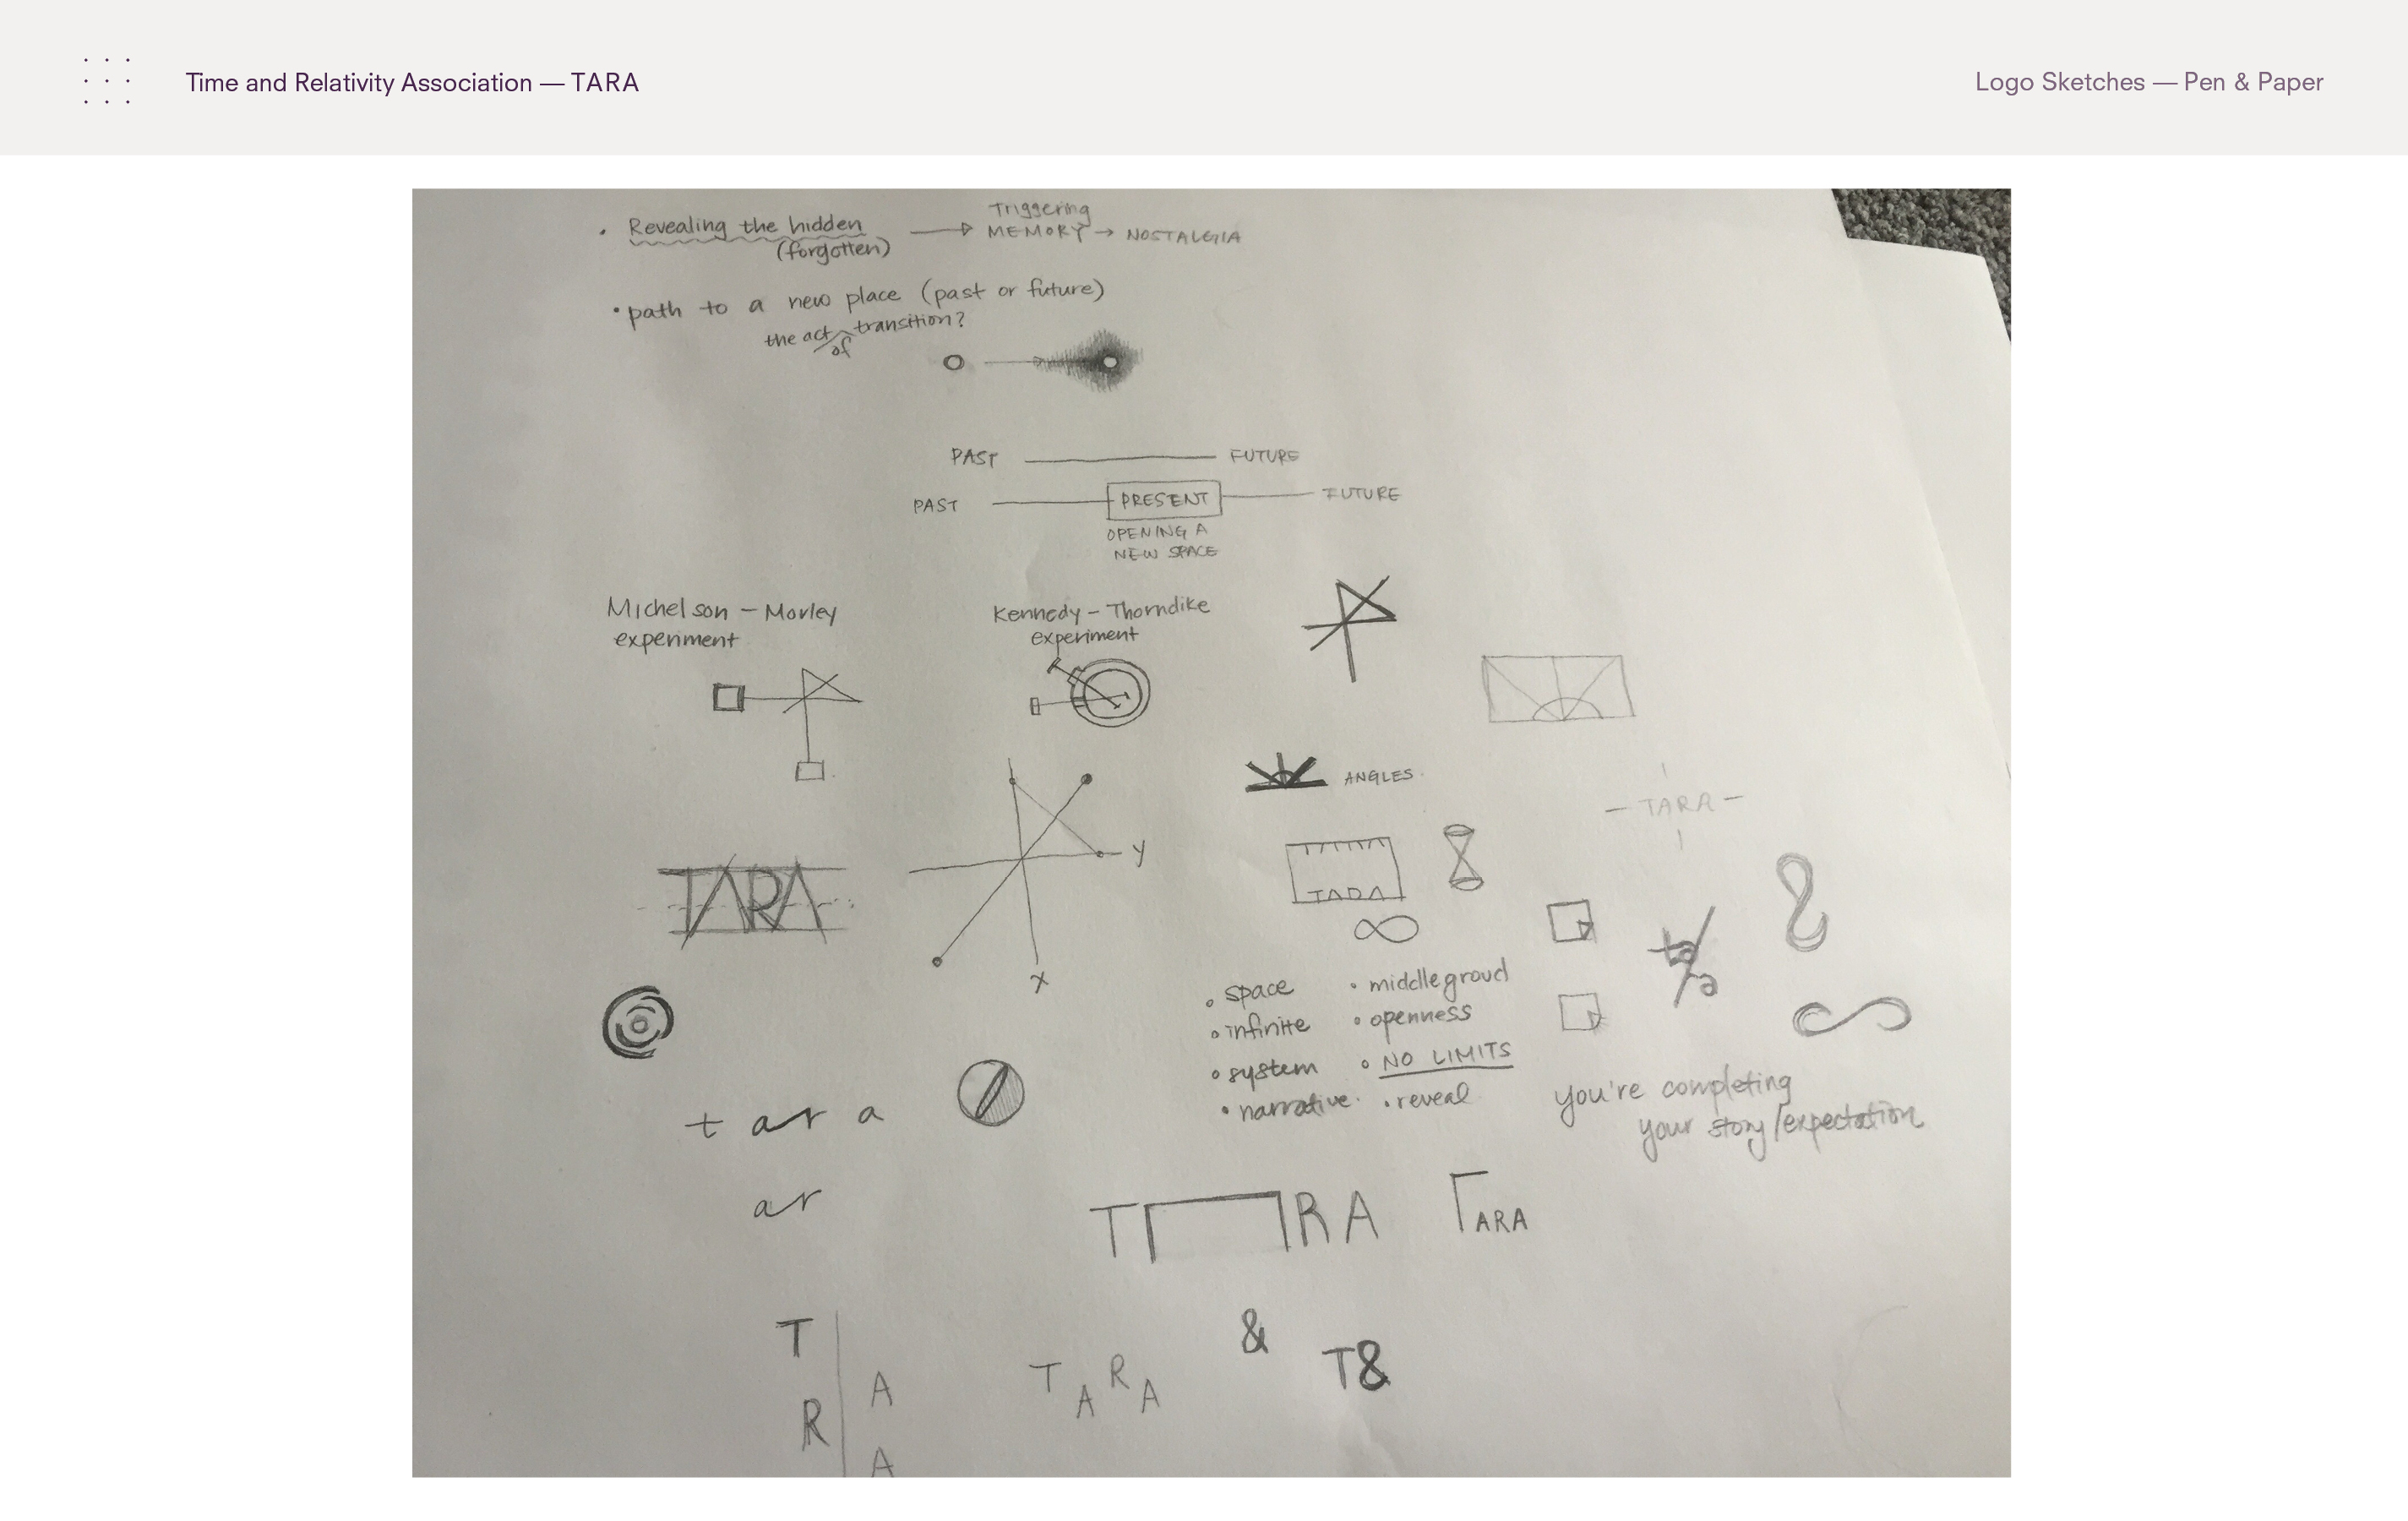 Time and Relativity Association — TARA
Logo Sketches — Pen & Paper
• Revealing the hidden
(forgotten)
Triggering
MEMORY → NOSTALGIA
• path to a new place (past or future)
the act of transition?
PAST FUTURE
PAST PRESENT FUTURE
OPENING A
NEW SPACE
Michelson – Morley
experiment
Kennedy – Thorndike
experiment
ANGLES
— TARA —
y
x
TARA
TARA
ta/ra
• space
• infinite
• system
• narrative
• middlegroud
• openness
• NO LIMITS
• reveal
you're completing
your story/expectation
t a r a
ar
T RA
TARA
T
R
A
A
T A R A
&
T&